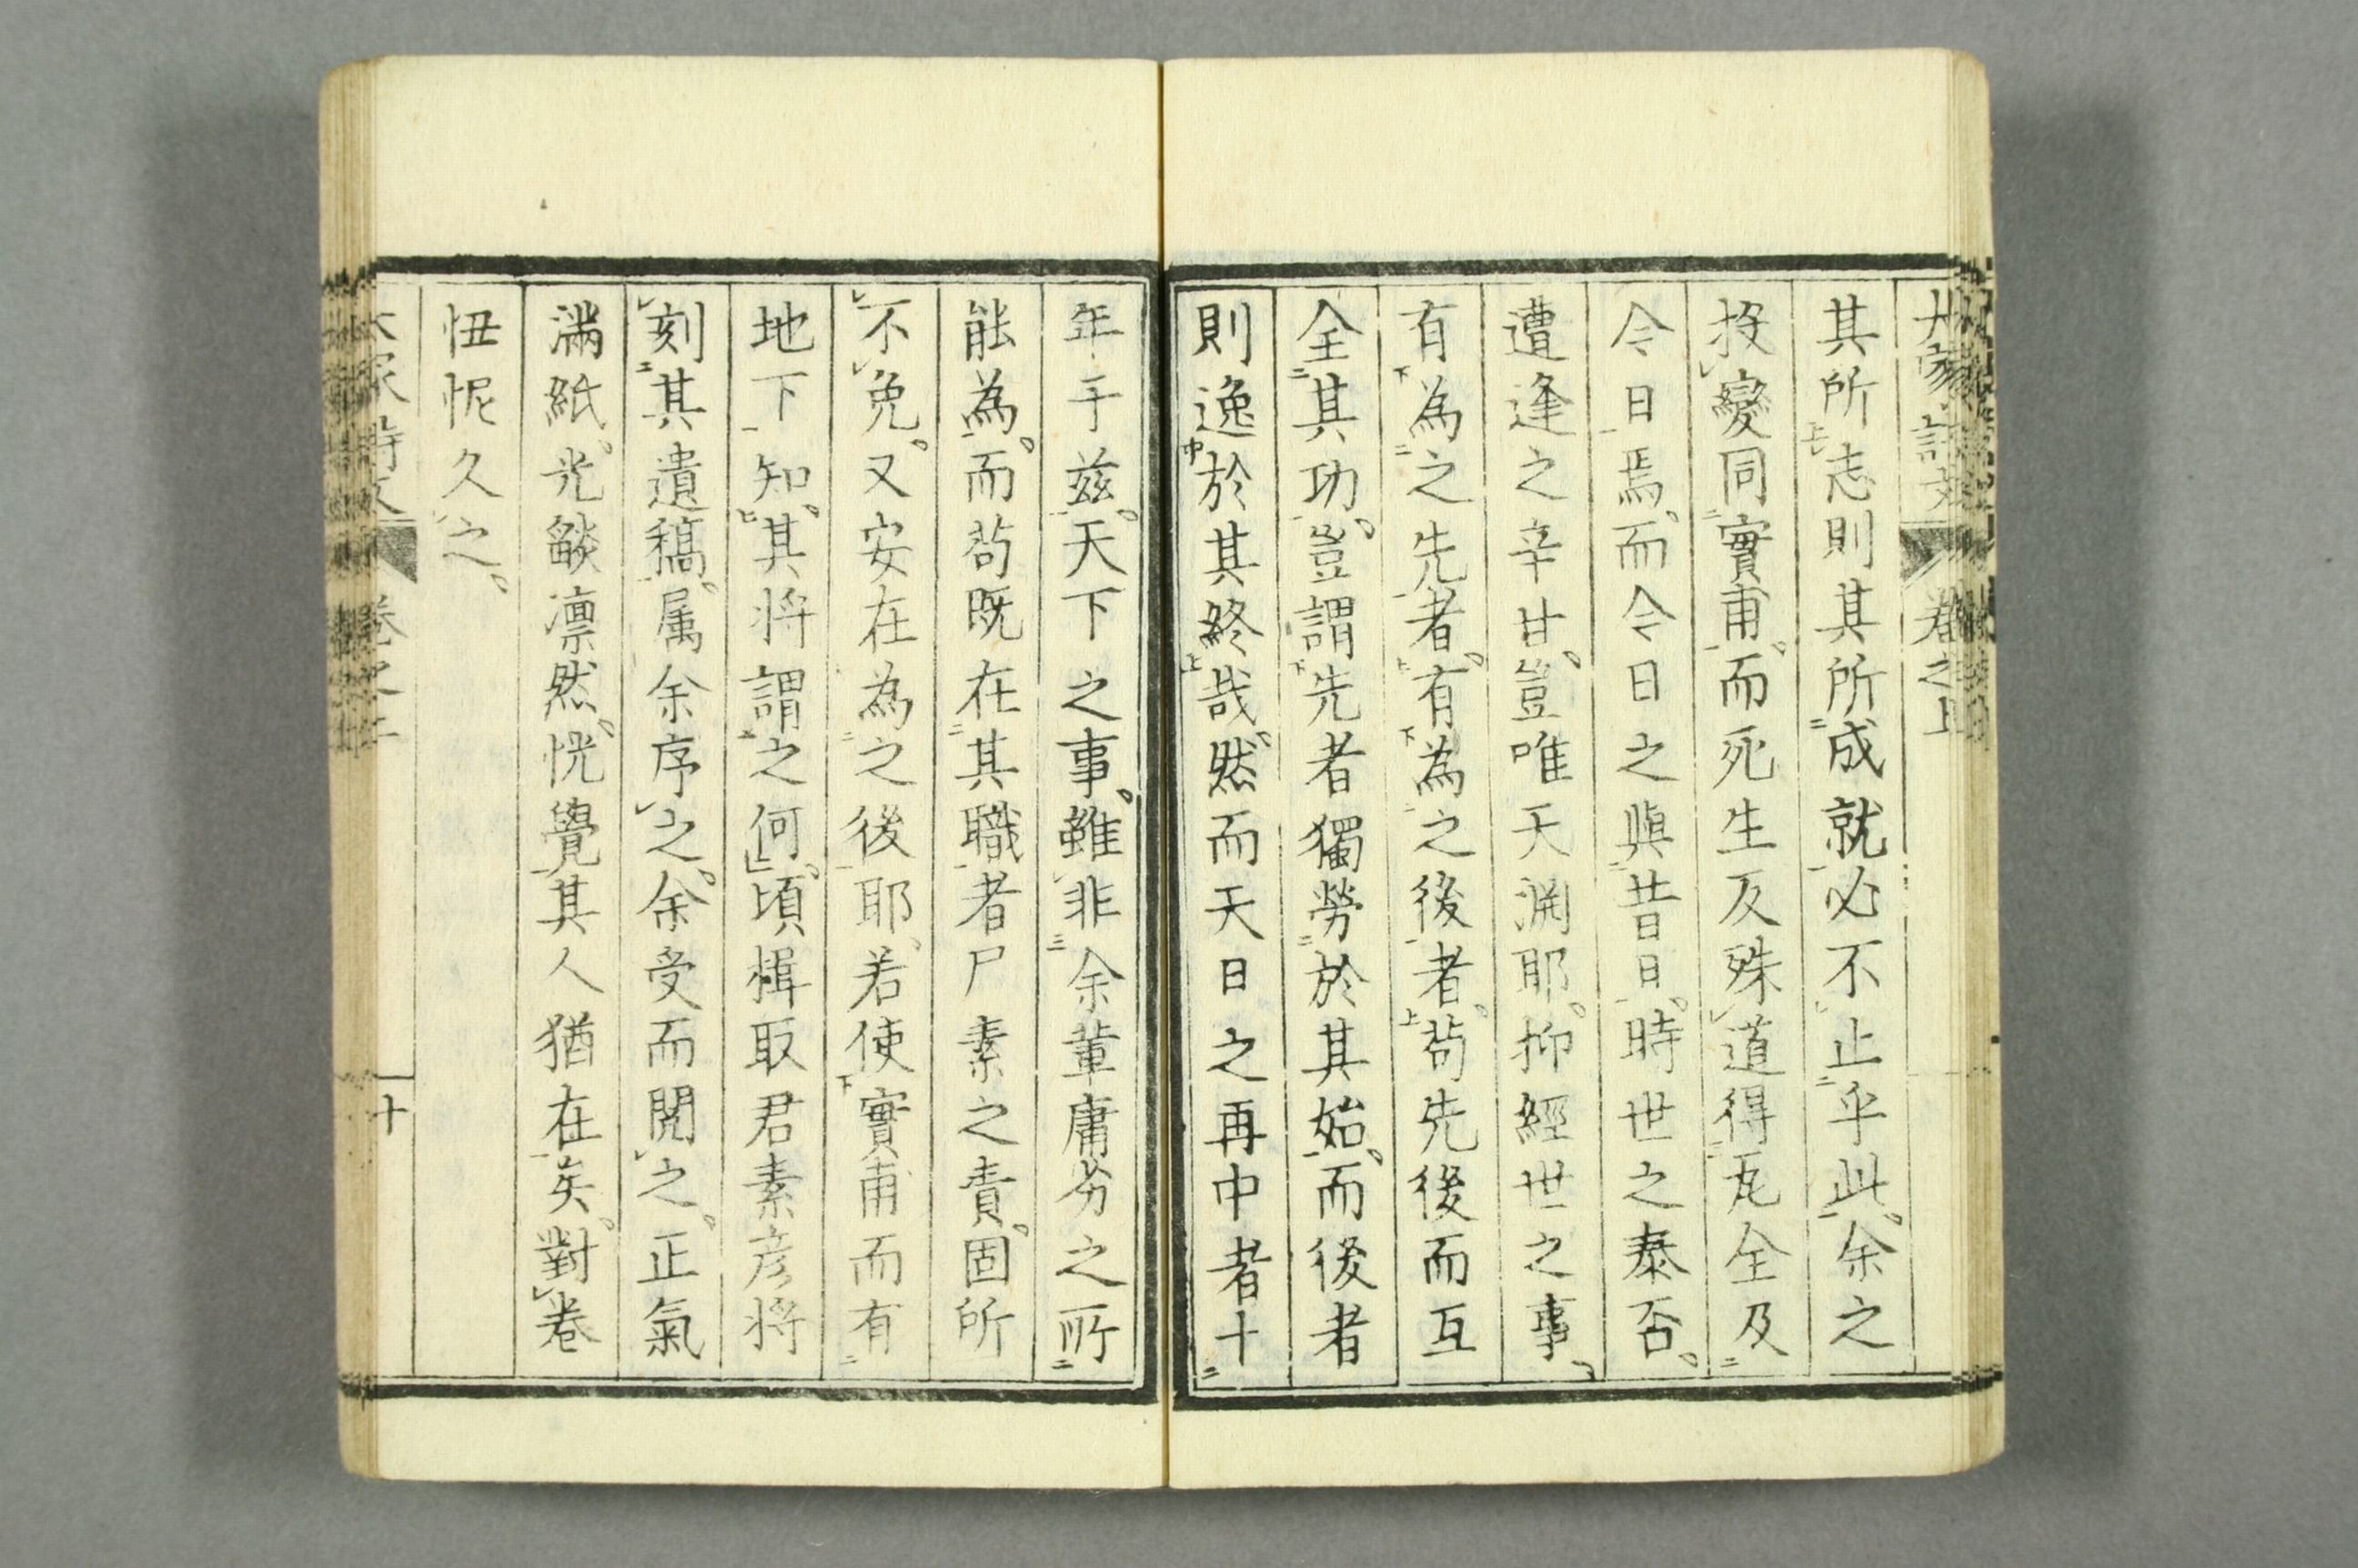 大家詩文 卷之上
其所志則其所成就必不止乎此。余之
投變同實甫。而死生反殊道得瓦全及
今日焉。而今日之與昔日。時世之泰否。
遭逢之辛甘。豈唯天淵耶。抑經世之事、
有為之先者。有為之後者。苟先後而互
全其功。豈謂先者獨勞於其始。而後者
則逸於其終哉。然而天日之再中者十
年于茲。天下之事。雖非余輩庸劣之所
能為。而苟既在其職者尸素之責。固所
不免。又安在為之後耶、若使實甫而有
地下知。其將謂之何」。頃揖取君素彦將
刻其遺稿。属余序之。余受而閱之。正氣
滿紙。光燄凛然。恍覺其人猶在矣。對卷
忸怩久之。
大家詩文 卷之上
十